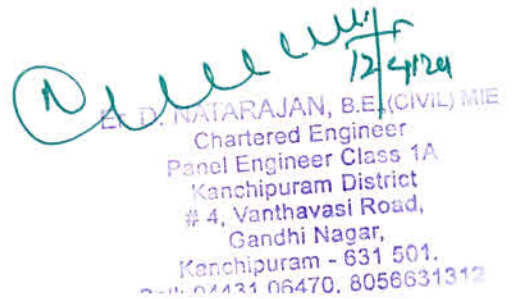 12/4/24
Er. D. NATARAJAN, B.E.(CIVIL) MIE
Chartered Engineer
Panel Engineer Class 1A
Kanchipuram District
# 4, Vanthavasi Road,
Gandhi Nagar,
Kanchipuram - 631 501.
Cell: 04431 06470, 8056631312